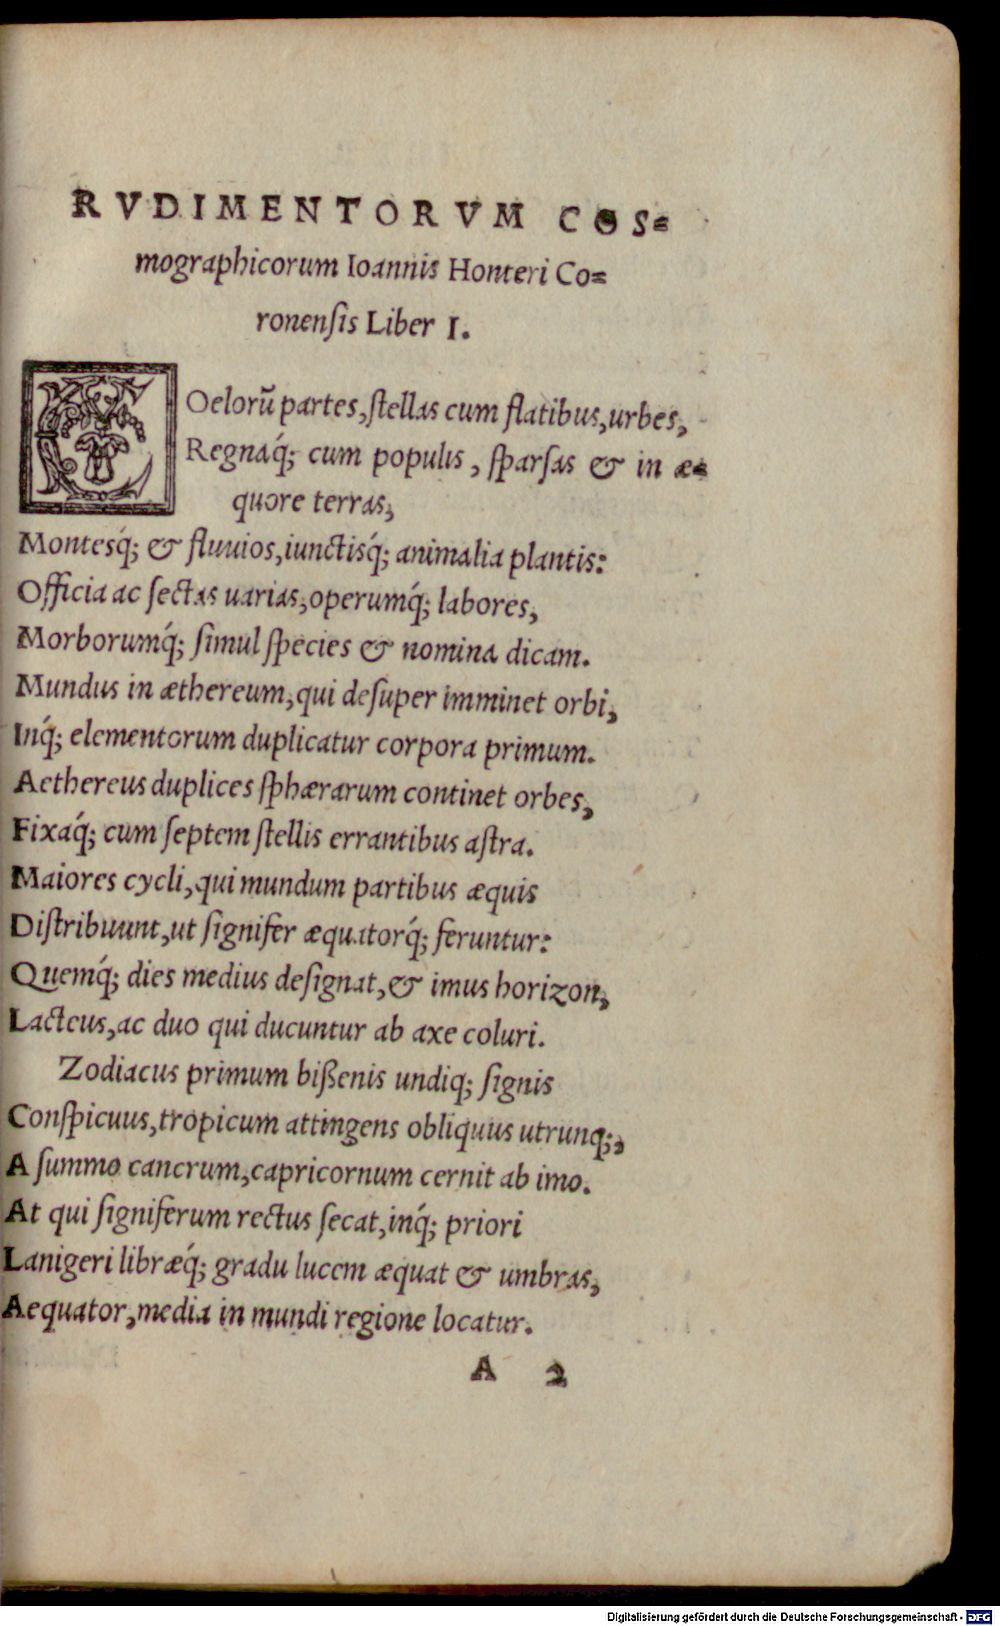 RVDIMENTORVM COS=
mographicorum Ioannis Honteri Co=
ronenſis Liber I.
COelorũ partes, ſtellas cum flatibus, urbes,
Regnaq́; cum populis, ſparſas & in æ=
quore terras,
Montesq́; & fluuios, iunctisq́; animalia plantis:
Officia ac ſectas uarias, operumq́; labores,
Morborumq́; ſimul ſpecies & nomina dicam.
Mundus in æthereum, qui deſuper imminet orbi,
Inq́; elementorum duplicatur corpora primum.
Aethereus duplices ſphærarum continet orbes,
Fixaq́; cum ſeptem ſtellis errantibus aſtra.
Maiores cycli, qui mundum partibus æquis
Diſtribuunt, ut ſignifer æquatorq́; feruntur:
Quemq́; dies medius deſignat, & imus horizon,
Lacteus, ac duo qui ducuntur ab axe coluri.
Zodiacus primum bißenis undiq; ſignis
Conſpicuus, tropicum attingens obliquus utrunq;,
A ſummo cancrum, capricornum cernit ab imo.
At qui ſigniferum rectus ſecat, inq́; priori
Lanigeri libræq́; gradu lucem æquat & umbras,
Aequator, media in mundi regione locatur.
A 2
Digitalisierung gefördert durch die Deutsche Forschungsgemeinschaft - DFG